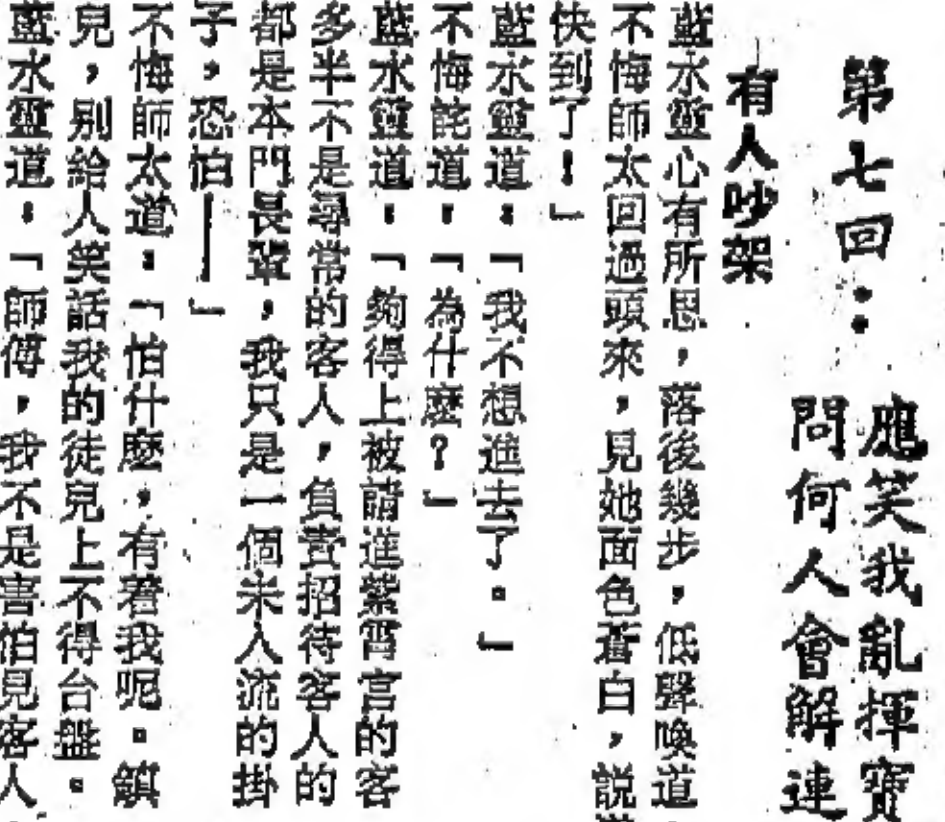 第七回：
應笑我亂揮寶
問何人會解連
有人吵架
藍水靈心有所思，落後幾步，低聲喚道
不悔師太回過頭來，見她面色蒼白，説
快到了！」
藍水靈道：「我不想進去了。」
不悔詫道：「為什麼？」
藍水靈道：「夠得上被請進紫霄宮的客
多半不是尋常的客人，負責招待客人的
都是本門長輩，我只是一個未入流的掛
子，恐怕——」
不悔師太道：「怕什麼，有着我呢。鎮
兒，别給人笑話我的徒兒上不得台盤。
藍水靈道：「師傅，我不是害怕見客人